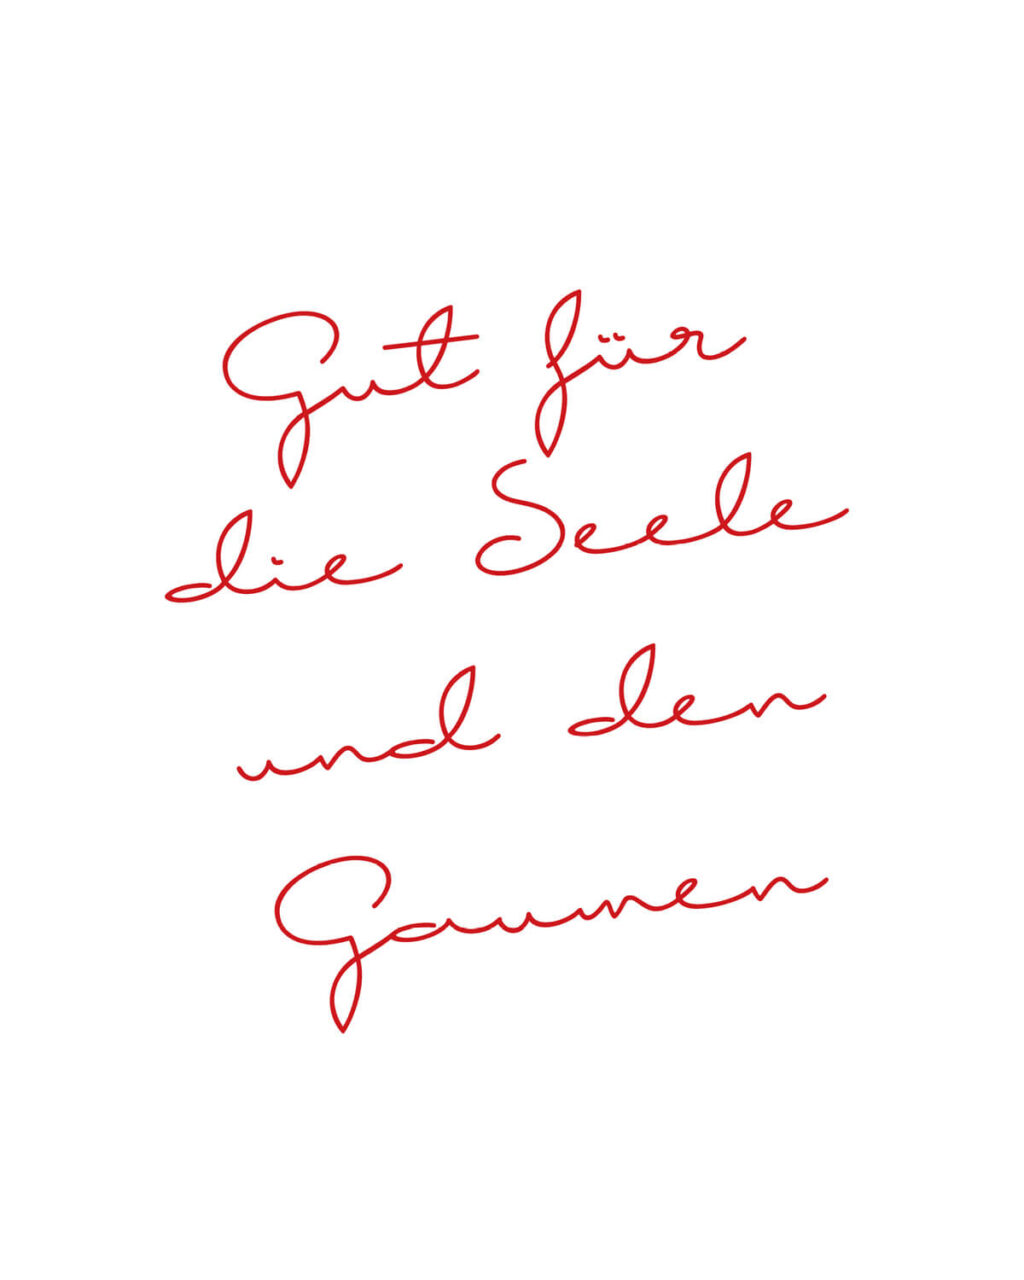 Gut für
die Seele
und den
Gaumen